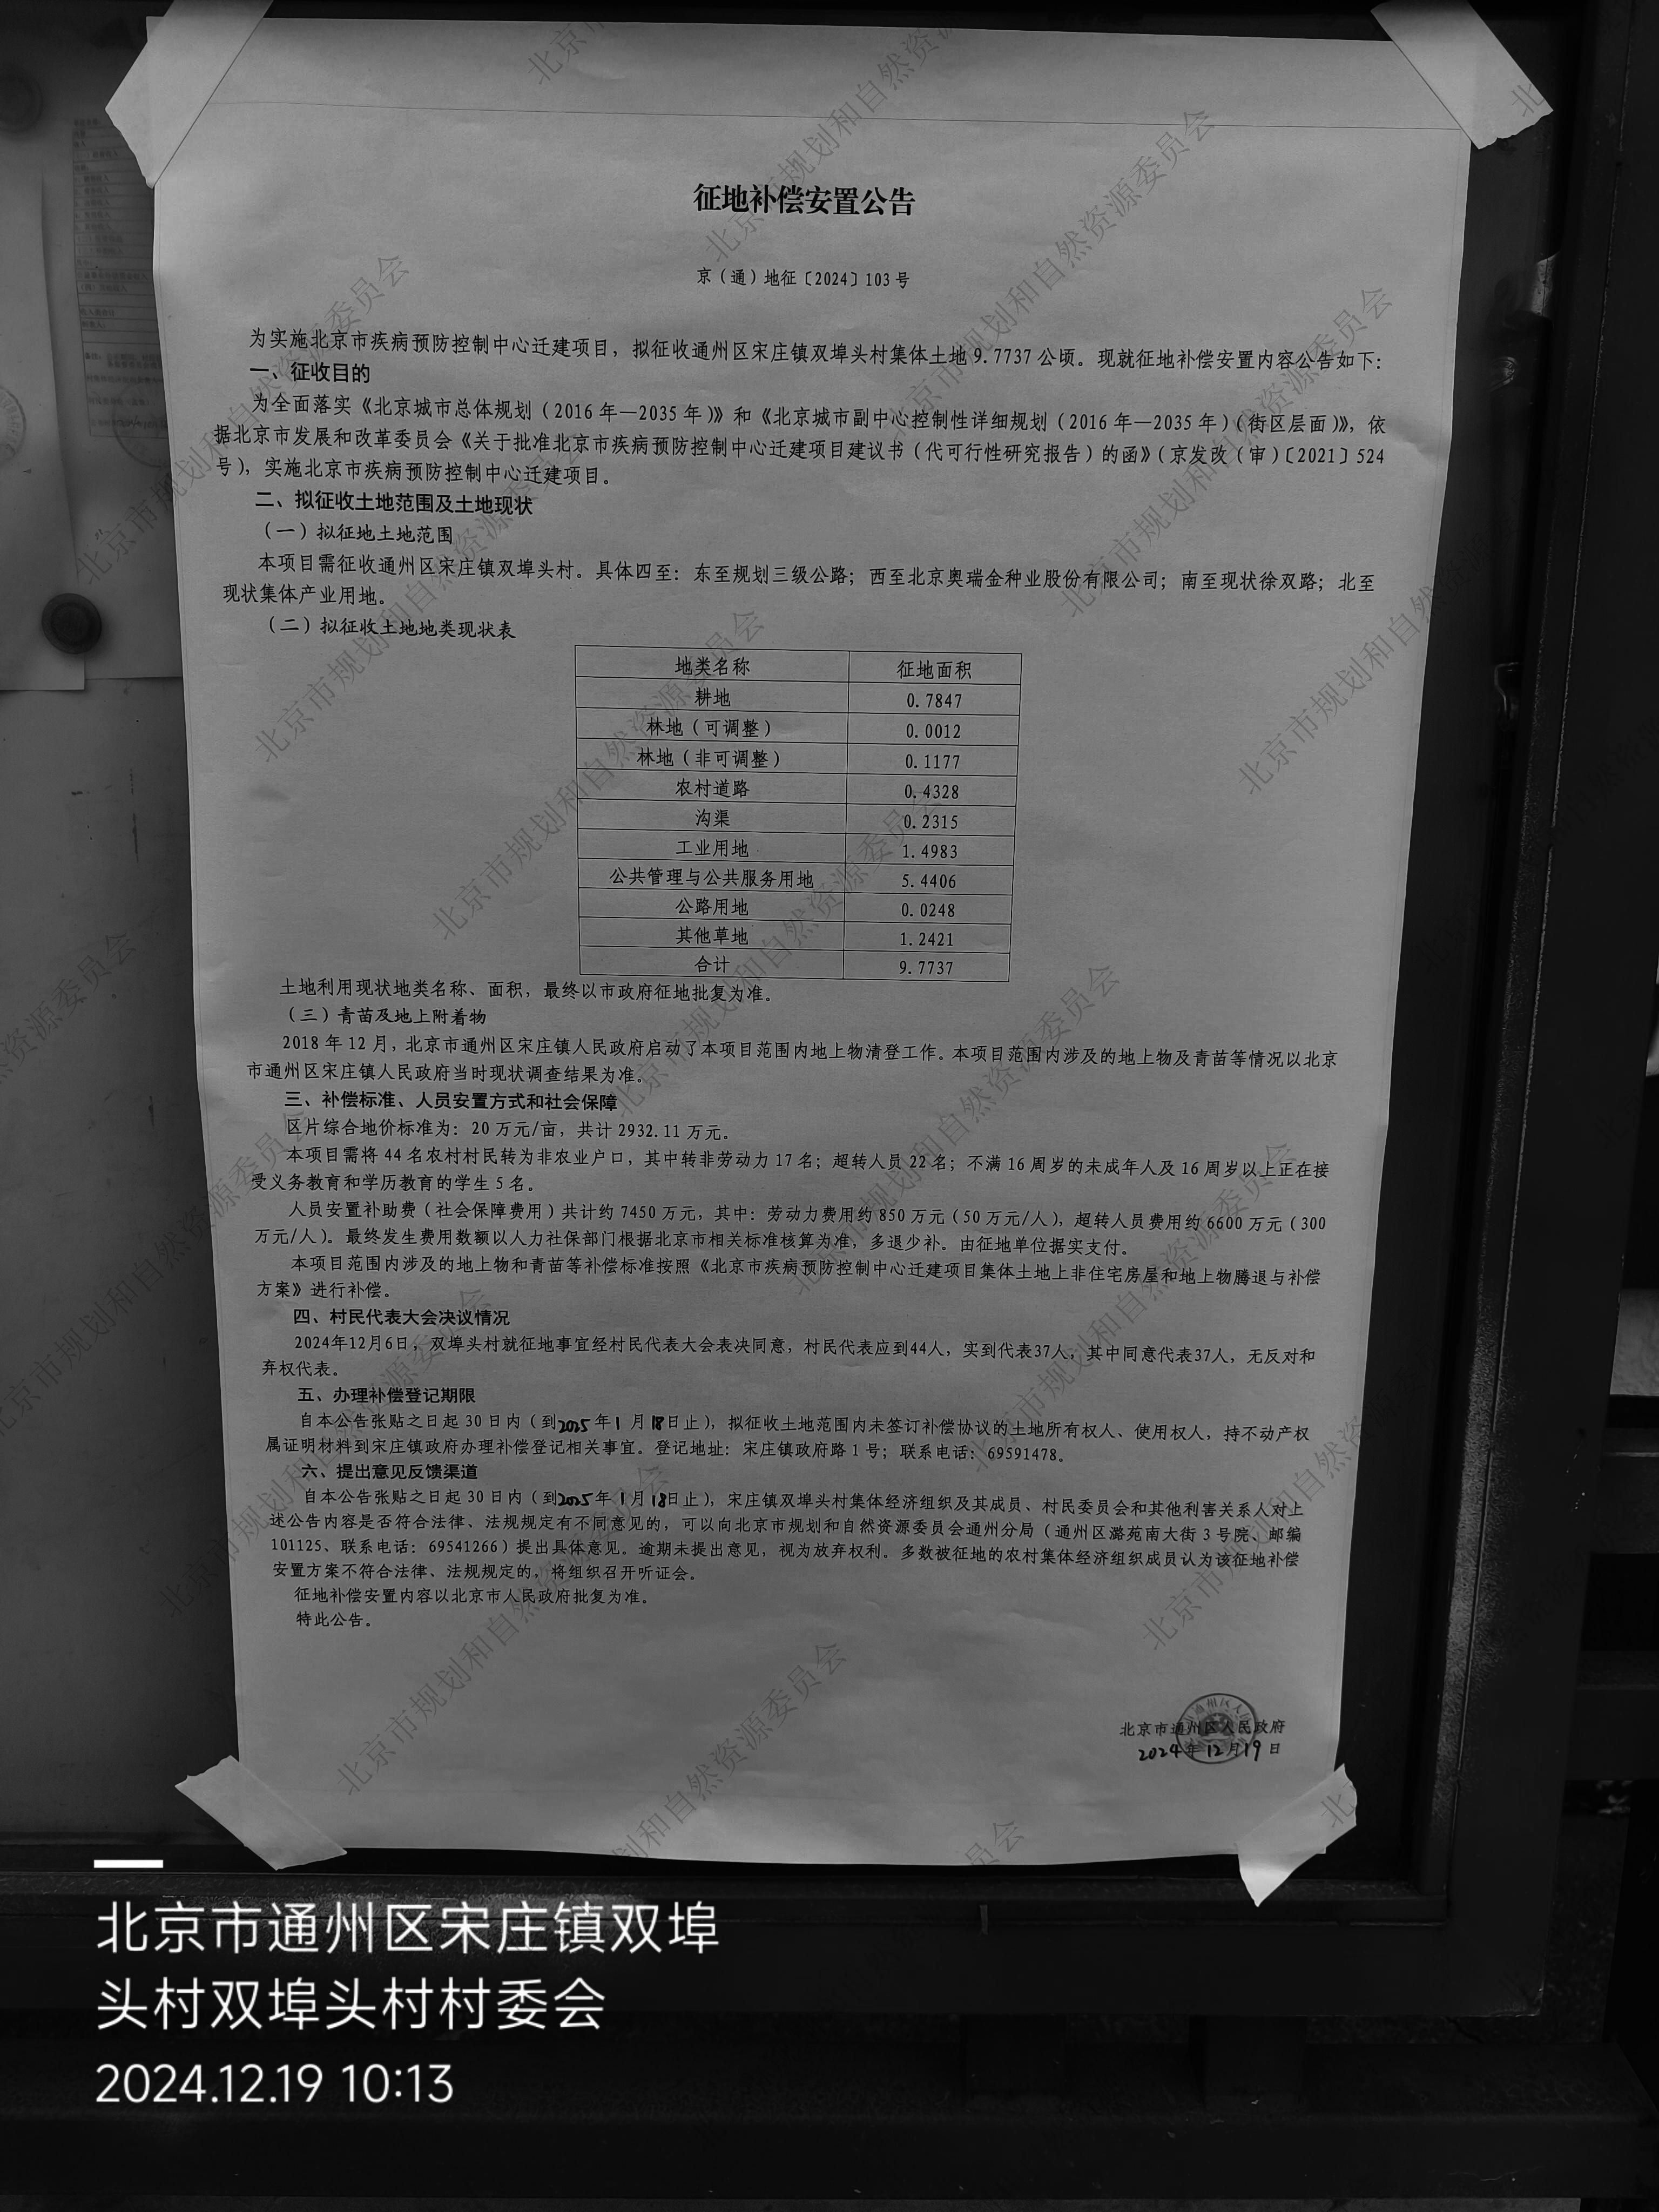 征地补偿安置公告
京（通）地征〔2024〕103号
为实施北京市疾病预防控制中心迁建项目，拟征收通州区宋庄镇双埠头村集体土地9.7737公顷。现就征地补偿安置内容公告如下：
一、征收目的
为全面落实《北京城市总体规划（2016年—2035年）》和《北京城市副中心控制性详细规划（2016年—2035年）（街区层面）》，依
据北京市发展和改革委员会《关于批准北京市疾病预防控制中心迁建项目建议书（代可行性研究报告）的函》（京发改（审）〔2021〕524
号），实施北京市疾病预防控制中心迁建项目。
二、拟征收土地范围及土地现状
（一）拟征地土地范围
本项目需征收通州区宋庄镇双埠头村。具体四至：东至规划三级公路；西至北京奥瑞金种业股份有限公司；南至现状徐双路；北至
现状集体产业用地。
（二）拟征收土地地类现状表
地类名称 征地面积
耕地 0.7847
林地（可调整） 0.0012
林地（非可调整） 0.1177
农村道路 0.4328
沟渠 0.2315
工业用地 1.4983
公共管理与公共服务用地 5.4406
公路用地 0.0248
其他草地 1.2421
合计 9.7737
土地利用现状地类名称、面积，最终以市政府征地批复为准。
（三）青苗及地上附着物
2018年12月，北京市通州区宋庄镇人民政府启动了本项目范围内地上物清登工作。本项目范围内涉及的地上物及青苗等情况以北京
市通州区宋庄镇人民政府当时现状调查结果为准。
三、补偿标准、人员安置方式和社会保障
区片综合地价标准为：20万元/亩，共计2932.11万元。
本项目需将44名农村村民转为非农业户口，其中转非劳动力17名；超转人员22名；不满16周岁的未成年人及16周岁以上正在接
受义务教育和学历教育的学生5名。
人员安置补助费（社会保障费用）共计约7450万元，其中：劳动力费用约850万元（50万元/人），超转人员费用约6600万元（300
万元/人）。最终发生费用数额以人力社保部门根据北京市相关标准核算为准，多退少补。由征地单位据实支付。
本项目范围内涉及的地上物和青苗等补偿标准按照《北京市疾病预防控制中心迁建项目集体土地上非住宅房屋和地上物腾退与补偿
方案》进行补偿。
四、村民代表大会决议情况
2024年12月6日，双埠头村就征地事宜经村民代表大会表决同意，村民代表应到44人，实到代表37人，其中同意代表37人，无反对和
弃权代表。
五、办理补偿登记期限
自本公告张贴之日起30日内（到2025年1月18日止），拟征收土地范围内未签订补偿协议的土地所有权人、使用权人，持不动产权
属证明材料到宋庄镇政府办理补偿登记相关事宜。登记地址：宋庄镇政府路1号；联系电话：69591478。
六、提出意见反馈渠道
自本公告张贴之日起30日内（到2025年1月18日止），宋庄镇双埠头村集体经济组织及其成员、村民委员会和其他利害关系人对上
述公告内容是否符合法律、法规规定有不同意见的，可以向北京市规划和自然资源委员会通州分局（通州区潞苑南大街3号院、邮编
101125、联系电话：69541266）提出具体意见。逾期未提出意见，视为放弃权利。多数被征地的农村集体经济组织成员认为该征地补偿
安置方案不符合法律、法规规定的，将组织召开听证会。
征地补偿安置内容以北京市人民政府批复为准。
特此公告。
北京市通州区人民政府
2024年12月19日
北京市通州区宋庄镇双埠
头村双埠头村村委会
2024.12.19 10:13
北京市规划和自然资源委员会